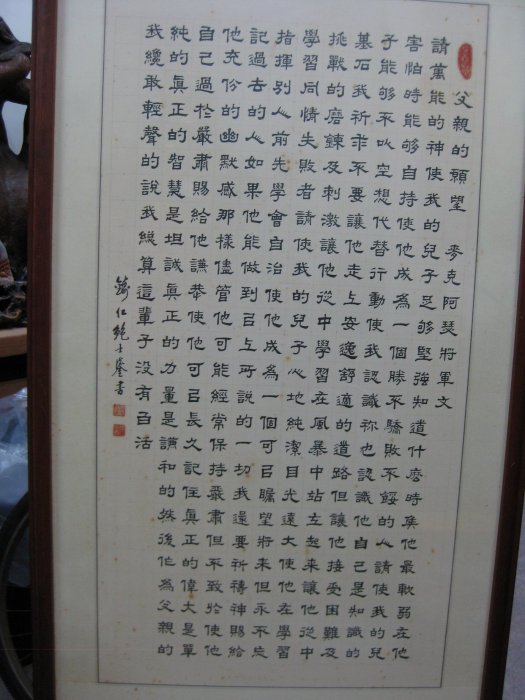 父親的願望 麥克阿瑟將軍文
請萬能的神使我的兒子足够堅強知道什麼時矦他最軟弱在他
害怕時能够自持使他成為一個勝不驕敗不餒的人請使我的兒
子能够不以空想代替行動使我認識祢也認識他自己是知識的
基石我祈求不要讓他走上安逸舒適的道路但讓他接受困難及
挑戰的磨鍊及刺激讓他從中學習在風暴中站立起來讓他從中
學習同情失敗者請使我的兒子心地純潔目光遠大使他在學習
指揮別人前先學會自治使他成為一個可以瞻望將來但永不忘
記過去的人如果他能做到以上所說的一切我還要祈禱神賜給
他充份的幽默感那樣儘管他可能經常保持嚴肅但不致於使他
自己過於嚴肅賜給他謙恭使他可以長久記住真正的偉大是單
純的真正的智慧是坦誠真正的力量是謙和的然後他為父親的
我纔敢輕聲的說我總算這輩子沒有白活